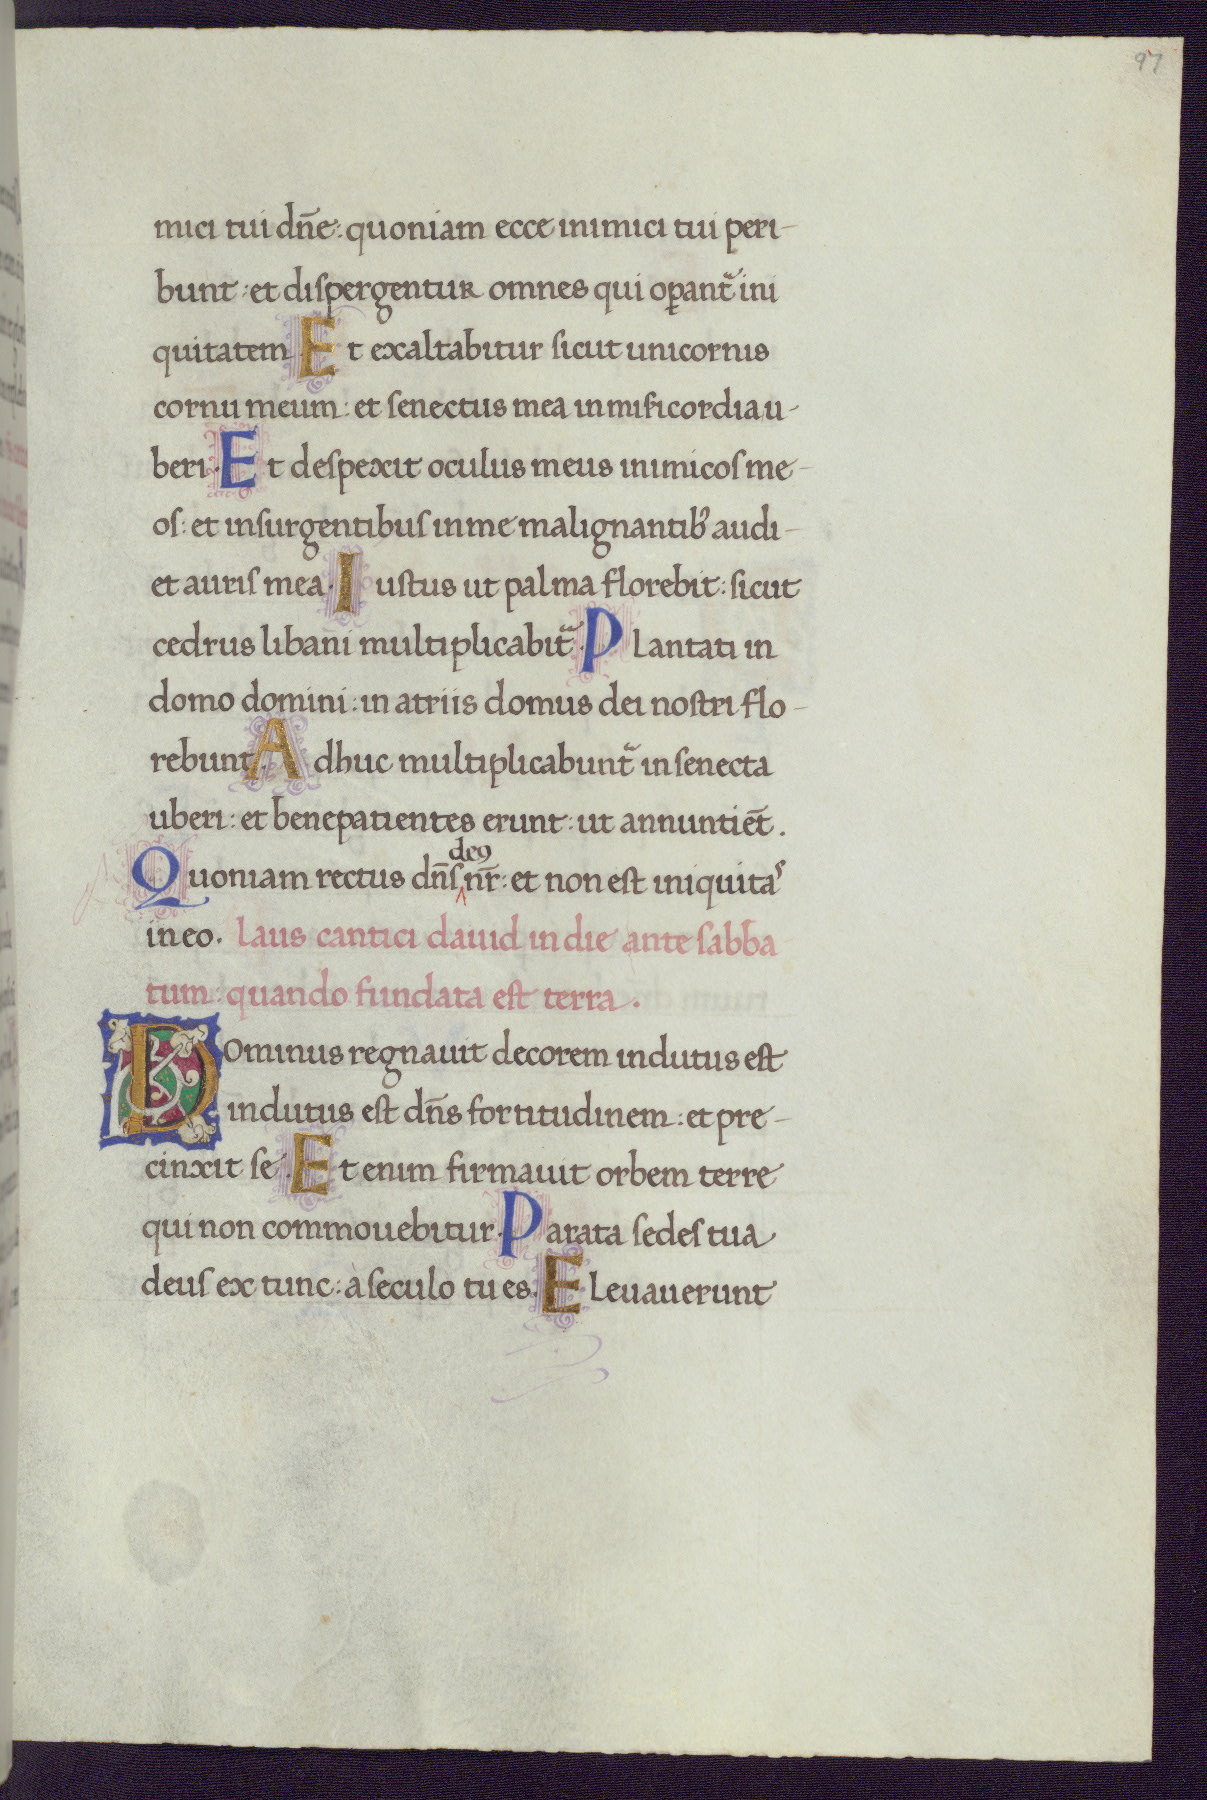 97
mici tui dn̄e: quoniam ecce inimici tui peri-
bunt: et dispergentur omnes qui oꝑant᷑ ini
quitatem Et exaltabitur sicut unicornis
cornu meum: et senectus mea in miſicordia u-
beri. Et despexit oculus meus inimicos me-
os: et insurgentibus in me malignantib᾽ audi-
et auris mea. Iustus ut palma florebit: sicut
cedrus libani multiplicabit᷑ Plantati in
domo domini: in atriis domus dei nostri flo-
rebunt. Adhuc multiplicabunt᷑ in senecta
uberi: et benepatientes erunt: ut annuntiēt.
deꝯ
Quoniam rectus dn̄s ‸ nr̄: et non est iniquitas
in eo. Laus cantici dauid in die ante sabba
tum: quando fundata est terra.
DOminus regnauit decorem indutus est
indutus est dn̄s fortitudinem: et pre-
cinxit se. Et enim firmauit orbem terre
qui non commouebitur. Parata sedes tua
deus ex tunc: à seculo tu es. Eleuauerunt